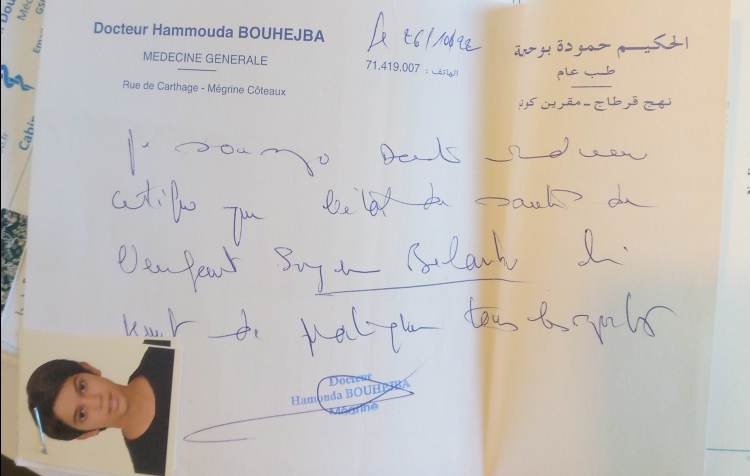 Docteur Hammouda BOUHEJBA
MEDECINE GENERALE
Rue de Carthage - Mégrine Côteaux
Le 26/10/92
71.419.007 : الهاتف
الحكيم حمودة بوحجبة
طب عام
نهج قرطاج - مقرين كوتو
Je soussigné Docteur
certifie que l'état de santé de
l'enfant
lui
permet de pratiquer tous les sports
Docteur
Hamouda BOUHEJBA
Mégrine